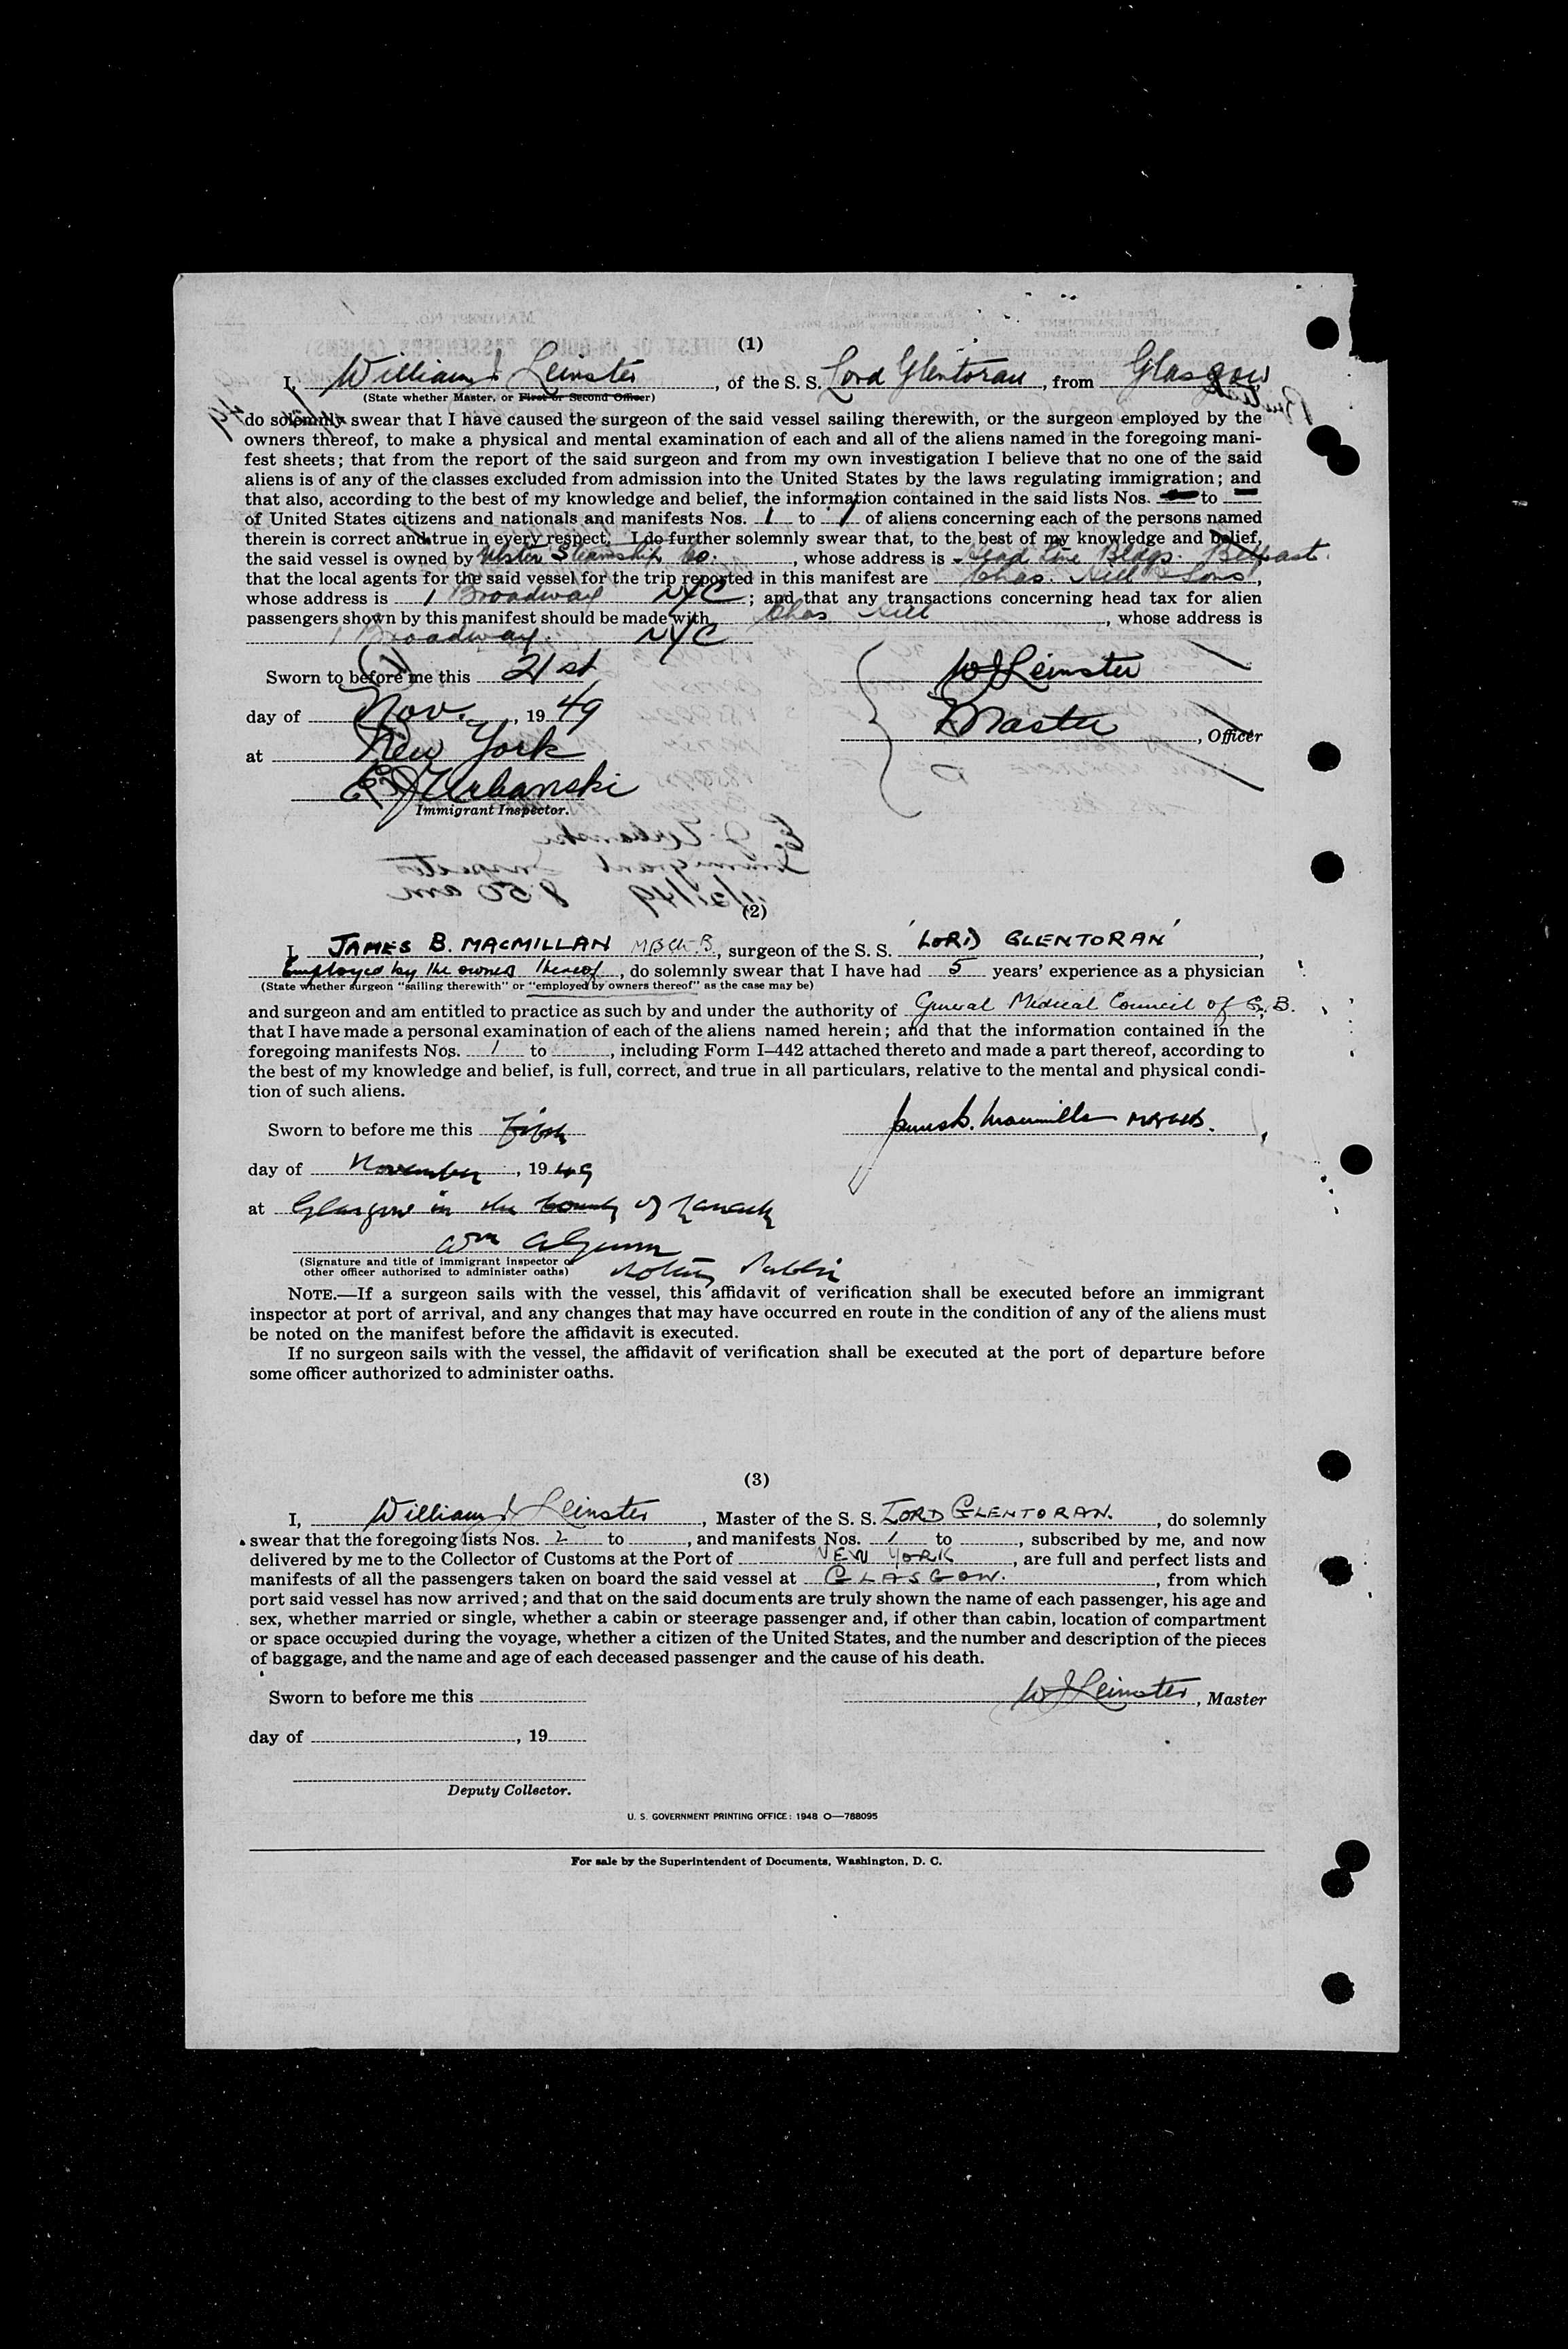 (1)
I, William J Leinster, of the S. S. Lord Glentoran, from Glasgow
(State whether Master, or First or Second Officer)
do solemnly swear that I have caused the surgeon of the said vessel sailing therewith, or the surgeon employed by the
owners thereof, to make a physical and mental examination of each and all of the aliens named in the foregoing mani-
fest sheets; that from the report of the said surgeon and from my own investigation I believe that no one of the said
aliens is of any of the classes excluded from admission into the United States by the laws regulating immigration; and
that also, according to the best of my knowledge and belief, the information contained in the said lists Nos. to
of United States citizens and nationals and manifests Nos. 1 to 1 of aliens concerning each of the persons named
therein is correct and true in every respect. I do further solemnly swear that, to the best of my knowledge and belief,
the said vessel is owned by Ulster Steamship Co., whose address is Head Line Bldgs. Belfast.
that the local agents for the said vessel for the trip reported in this manifest are Chas. Hill & Sons,
whose address is 1 Broadway NYC; and that any transactions concerning head tax for alien
passengers shown by this manifest should be made with Chas Hill, whose address is
1 Broadway. NYC
Sworn to before me this 21st
W J Leinster
day of Nov., 1949
Master, Officer
at New York
E J Urbanski
Immigrant Inspector.
E. J. Urbanski
Immigrant Inspector
11/21/49 8:50 am
(2)
I, JAMES B. MACMILLAN M.B.Ch.B., surgeon of the S. S. 'LORD GLENTORAN',
Employed by the owners thereof, do solemnly swear that I have had 5 years' experience as a physician
(State whether surgeon "sailing therewith" or "employed by owners thereof" as the case may be)
and surgeon and am entitled to practice as such by and under the authority of General Medical Council of G. B.
that I have made a personal examination of each of the aliens named herein; and that the information contained in the
foregoing manifests Nos. 1 to , including Form I–442 attached thereto and made a part thereof, according to
the best of my knowledge and belief, is full, correct, and true in all particulars, relative to the mental and physical condi-
tion of such aliens.
Sworn to before me this Fifth
James B. Macmillan M.B.Ch.B.
day of November, 1949
at Glasgow in the County of Lanark
Wm
(Signature and title of immigrant inspector or
other officer authorized to administer oaths)
Notary Public
NOTE.—If a surgeon sails with the vessel, this affidavit of verification shall be executed before an immigrant
inspector at port of arrival, and any changes that may have occurred en route in the condition of any of the aliens must
be noted on the manifest before the affidavit is executed.
If no surgeon sails with the vessel, the affidavit of verification shall be executed at the port of departure before
some officer authorized to administer oaths.
(3)
I, William J Leinster, Master of the S. S. LORD GLENTORAN., do solemnly
swear that the foregoing lists Nos. 2 to , and manifests Nos. 1 to , subscribed by me, and now
delivered by me to the Collector of Customs at the Port of NEW YORK, are full and perfect lists and
manifests of all the passengers taken on board the said vessel at GLASGOW., from which
port said vessel has now arrived; and that on the said documents are truly shown the name of each passenger, his age and
sex, whether married or single, whether a cabin or steerage passenger and, if other than cabin, location of compartment
or space occupied during the voyage, whether a citizen of the United States, and the number and description of the pieces
of baggage, and the name and age of each deceased passenger and the cause of his death.
Sworn to before me this
W J Leinster, Master
day of , 19
Deputy Collector.
U. S. GOVERNMENT PRINTING OFFICE: 1948 O—788095
For sale by the Superintendent of Documents, Washington, D. C.